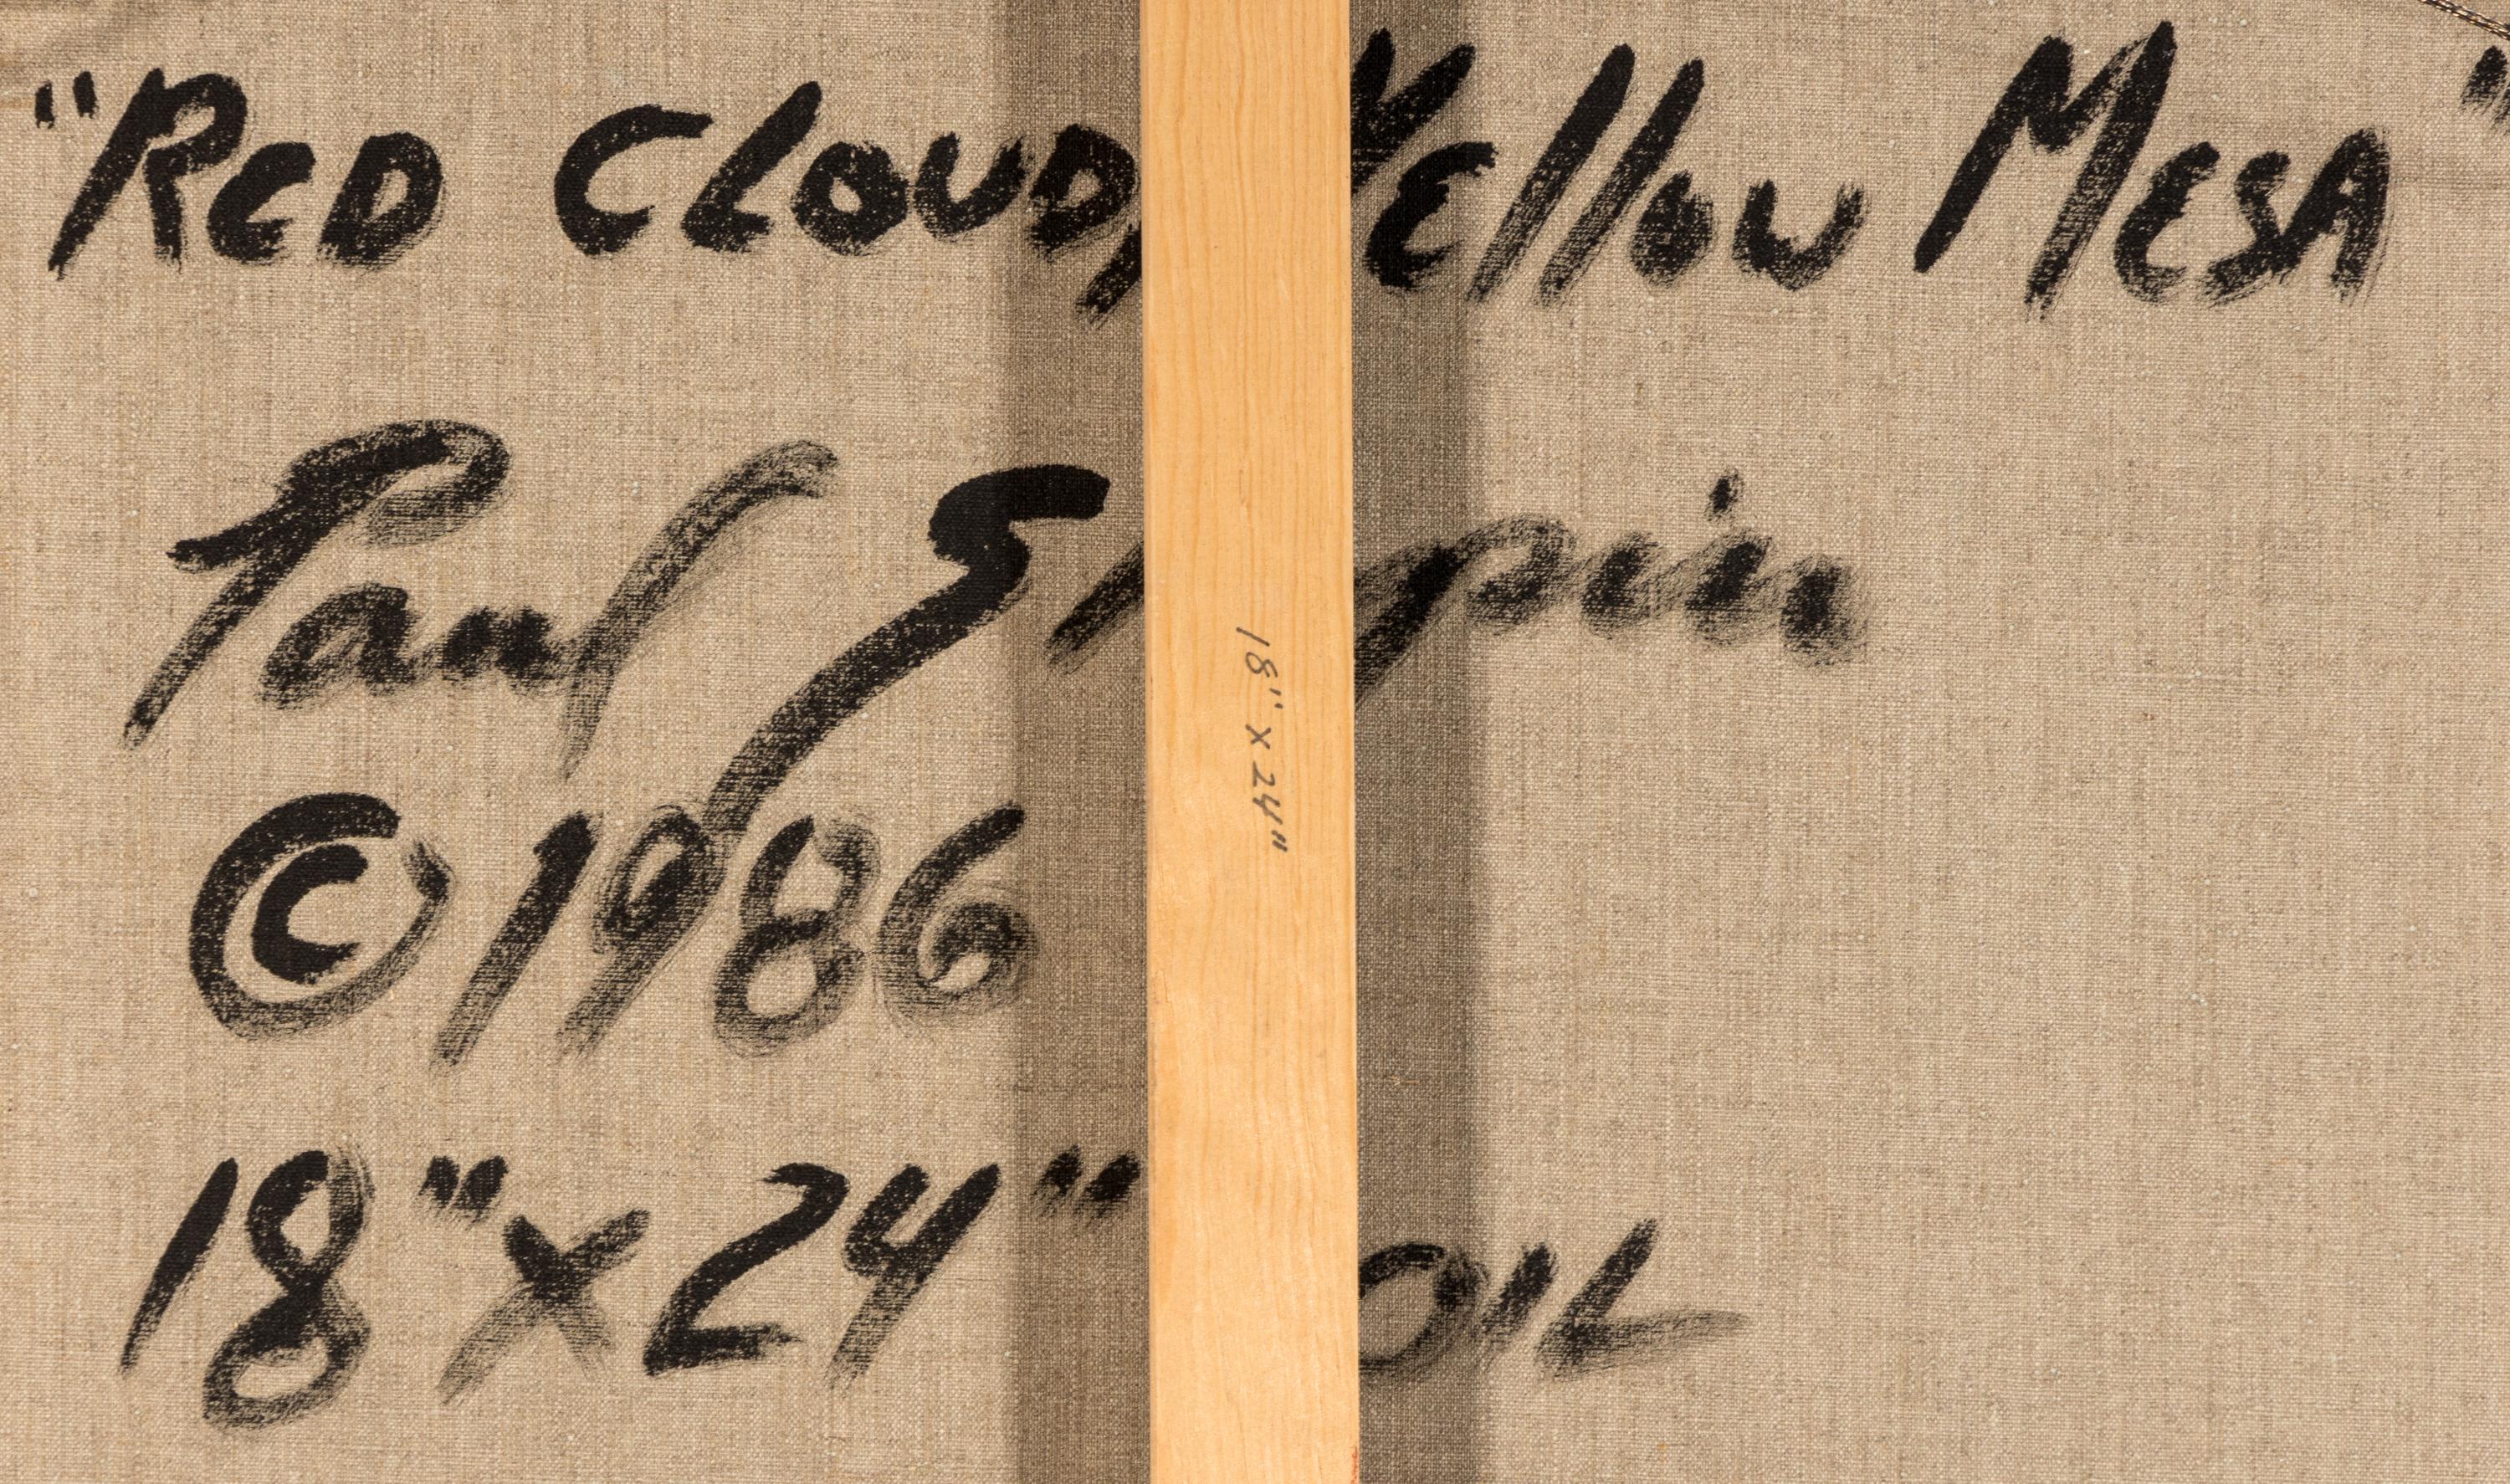 "RED CLOUD, Yellow MESA"
Paul
©1986
18"x24" OIL
18" x 24"